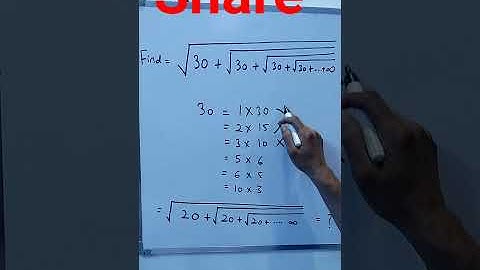 Share
Find = √30 + √30 + √30 + √30 + ... + ∞
30 = 1 × 30 ×
= 2 × 15 ×
= 3 × 10 ×
= 5 × 6
= 6 × 5
= 10 × 3
= √20 + √20 + √20 + ..... ∞ = ?